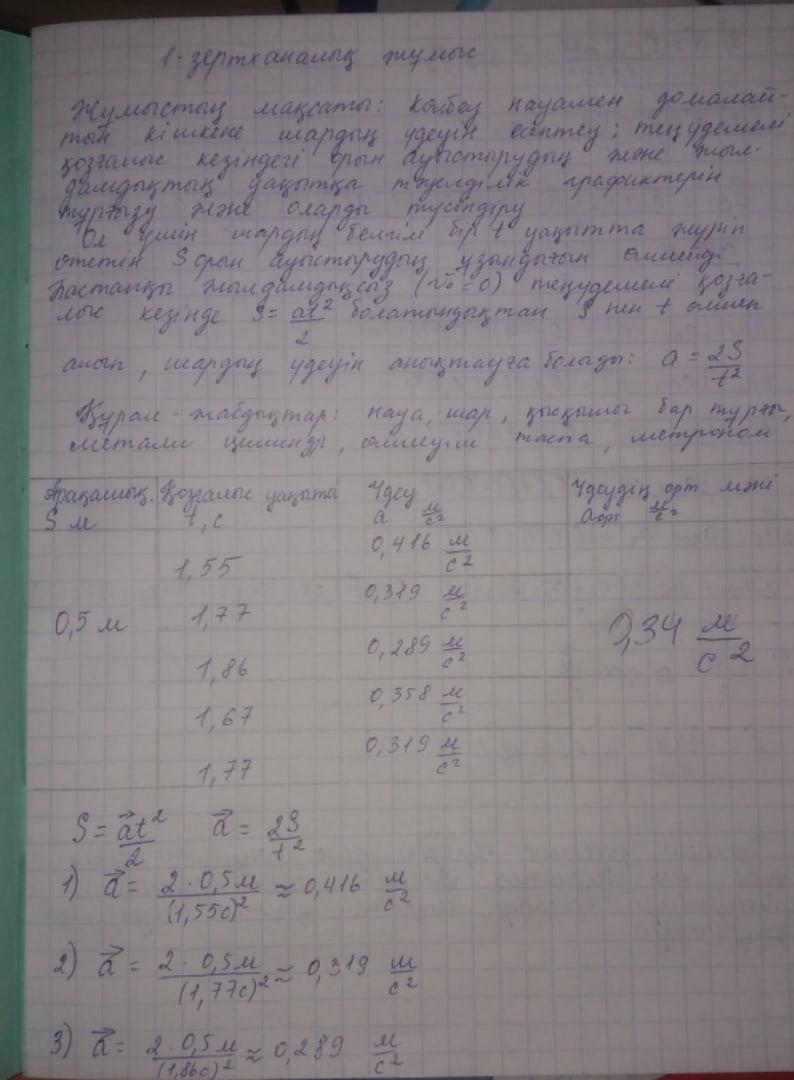 1-зертханалық жұмыс
Жұмыстың мақсаты: көлбеу науамен домалай-
тын кішкене шардың үдеуін есептеу; теңүдемелі
қозғалыс кезіндегі орын ауыстырудың және жыл-
дамдықтың уақытқа тәуелділік графиктерін
тұрғызу және оларды түсіндіру
Ол үшін шардың белгілі бір t уақытта жүріп
өтетін S орын ауыстырудың ұзындығын өлшейді
Бастапқы жылдамдықсыз (v₀ = 0) теңүдемелі қозға-
лыс кезінде S = at²/2 болатындықтан S пен t өлшеп
алып, шардың үдеуін анықтауға болады: a = 2S/t²
Құрал-жабдықтар: науа, шар, қысқышы бар тұрғы,
металл цилиндр, өлшеуіш таспа, метроном
Арақашық. Қозғалыс уақыты Үдеу Үдеудің орт. мәні
S м t, с a м/с² aорт м/с²
1,55 0,416 м/с²
1,77 0,319 м/с²
0,5 м 0,34 м/с²
1,86 0,289 м/с²
1,67 0,358 м/с²
1,77 0,319 м/с²
S = a⃗t²/2 a⃗ = 2S/t²
1) a⃗ = 2 · 0,5м/(1,55с)² ≈ 0,416 м/с²
2) a⃗ = 2 · 0,5м/(1,77с)² ≈ 0,319 м/с²
3) a⃗ = 2 · 0,5м/(1,86с)² ≈ 0,289 м/с²